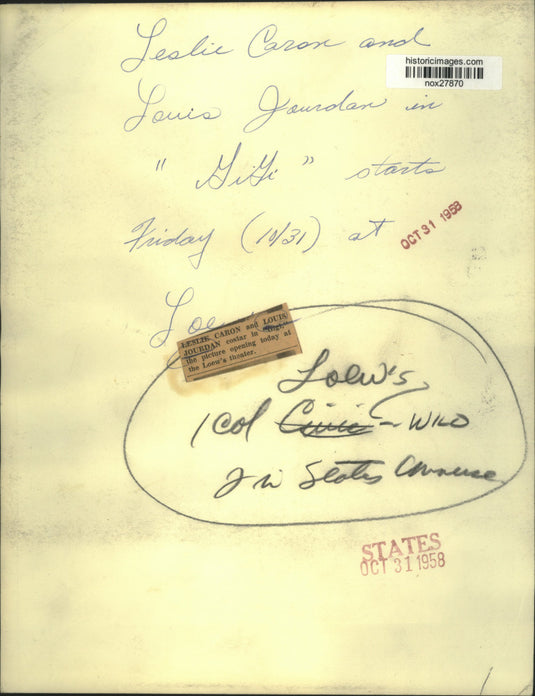 Leslie Caron and
historicimages.com
nox27870
Louis Jourdan in
"GiGi" starts
Friday (10/31) at
OCT 31 1958
Loe
LESLIE CARON and LOUIS
JOURDAN costar in "Gigi,"
the picture opening today at
the Loew's theater.
Loew's
1 col Civic - WILD
Fri States
STATES
OCT 31 1958